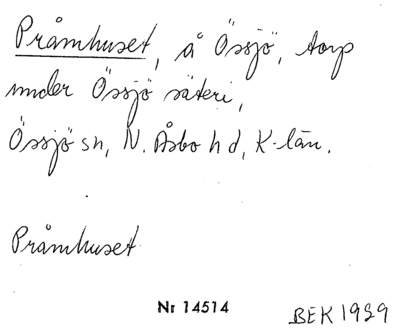 Pråmhuset, å Össjö, torp
under Össjö säteri,
Össjö sn, N. Åsbo hd, K-län.
Pråmhuset
Nr 14514
BEK 1929